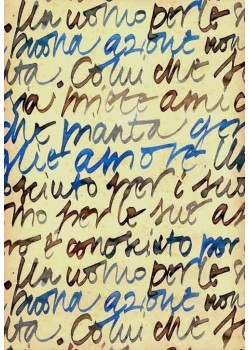 . Un uomo per le s
buona azione non
ta. Colui che s
na miete ami
che pianta ge
lie amore. Un
osciuto per i suo
mo per le sue a
ro è conosciuto por
. Un uomo per le s
buona azione non
ta. Colui che s